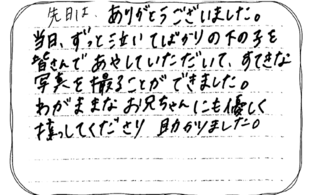 先日は、ありがとうございました。
当日、ずっと泣いてばかりの下の子を
皆さんであやしていただいて、すてきな
写真を撮ることができました。
わがままなお兄ちゃんにも優しく
接してくださり 助かりました。